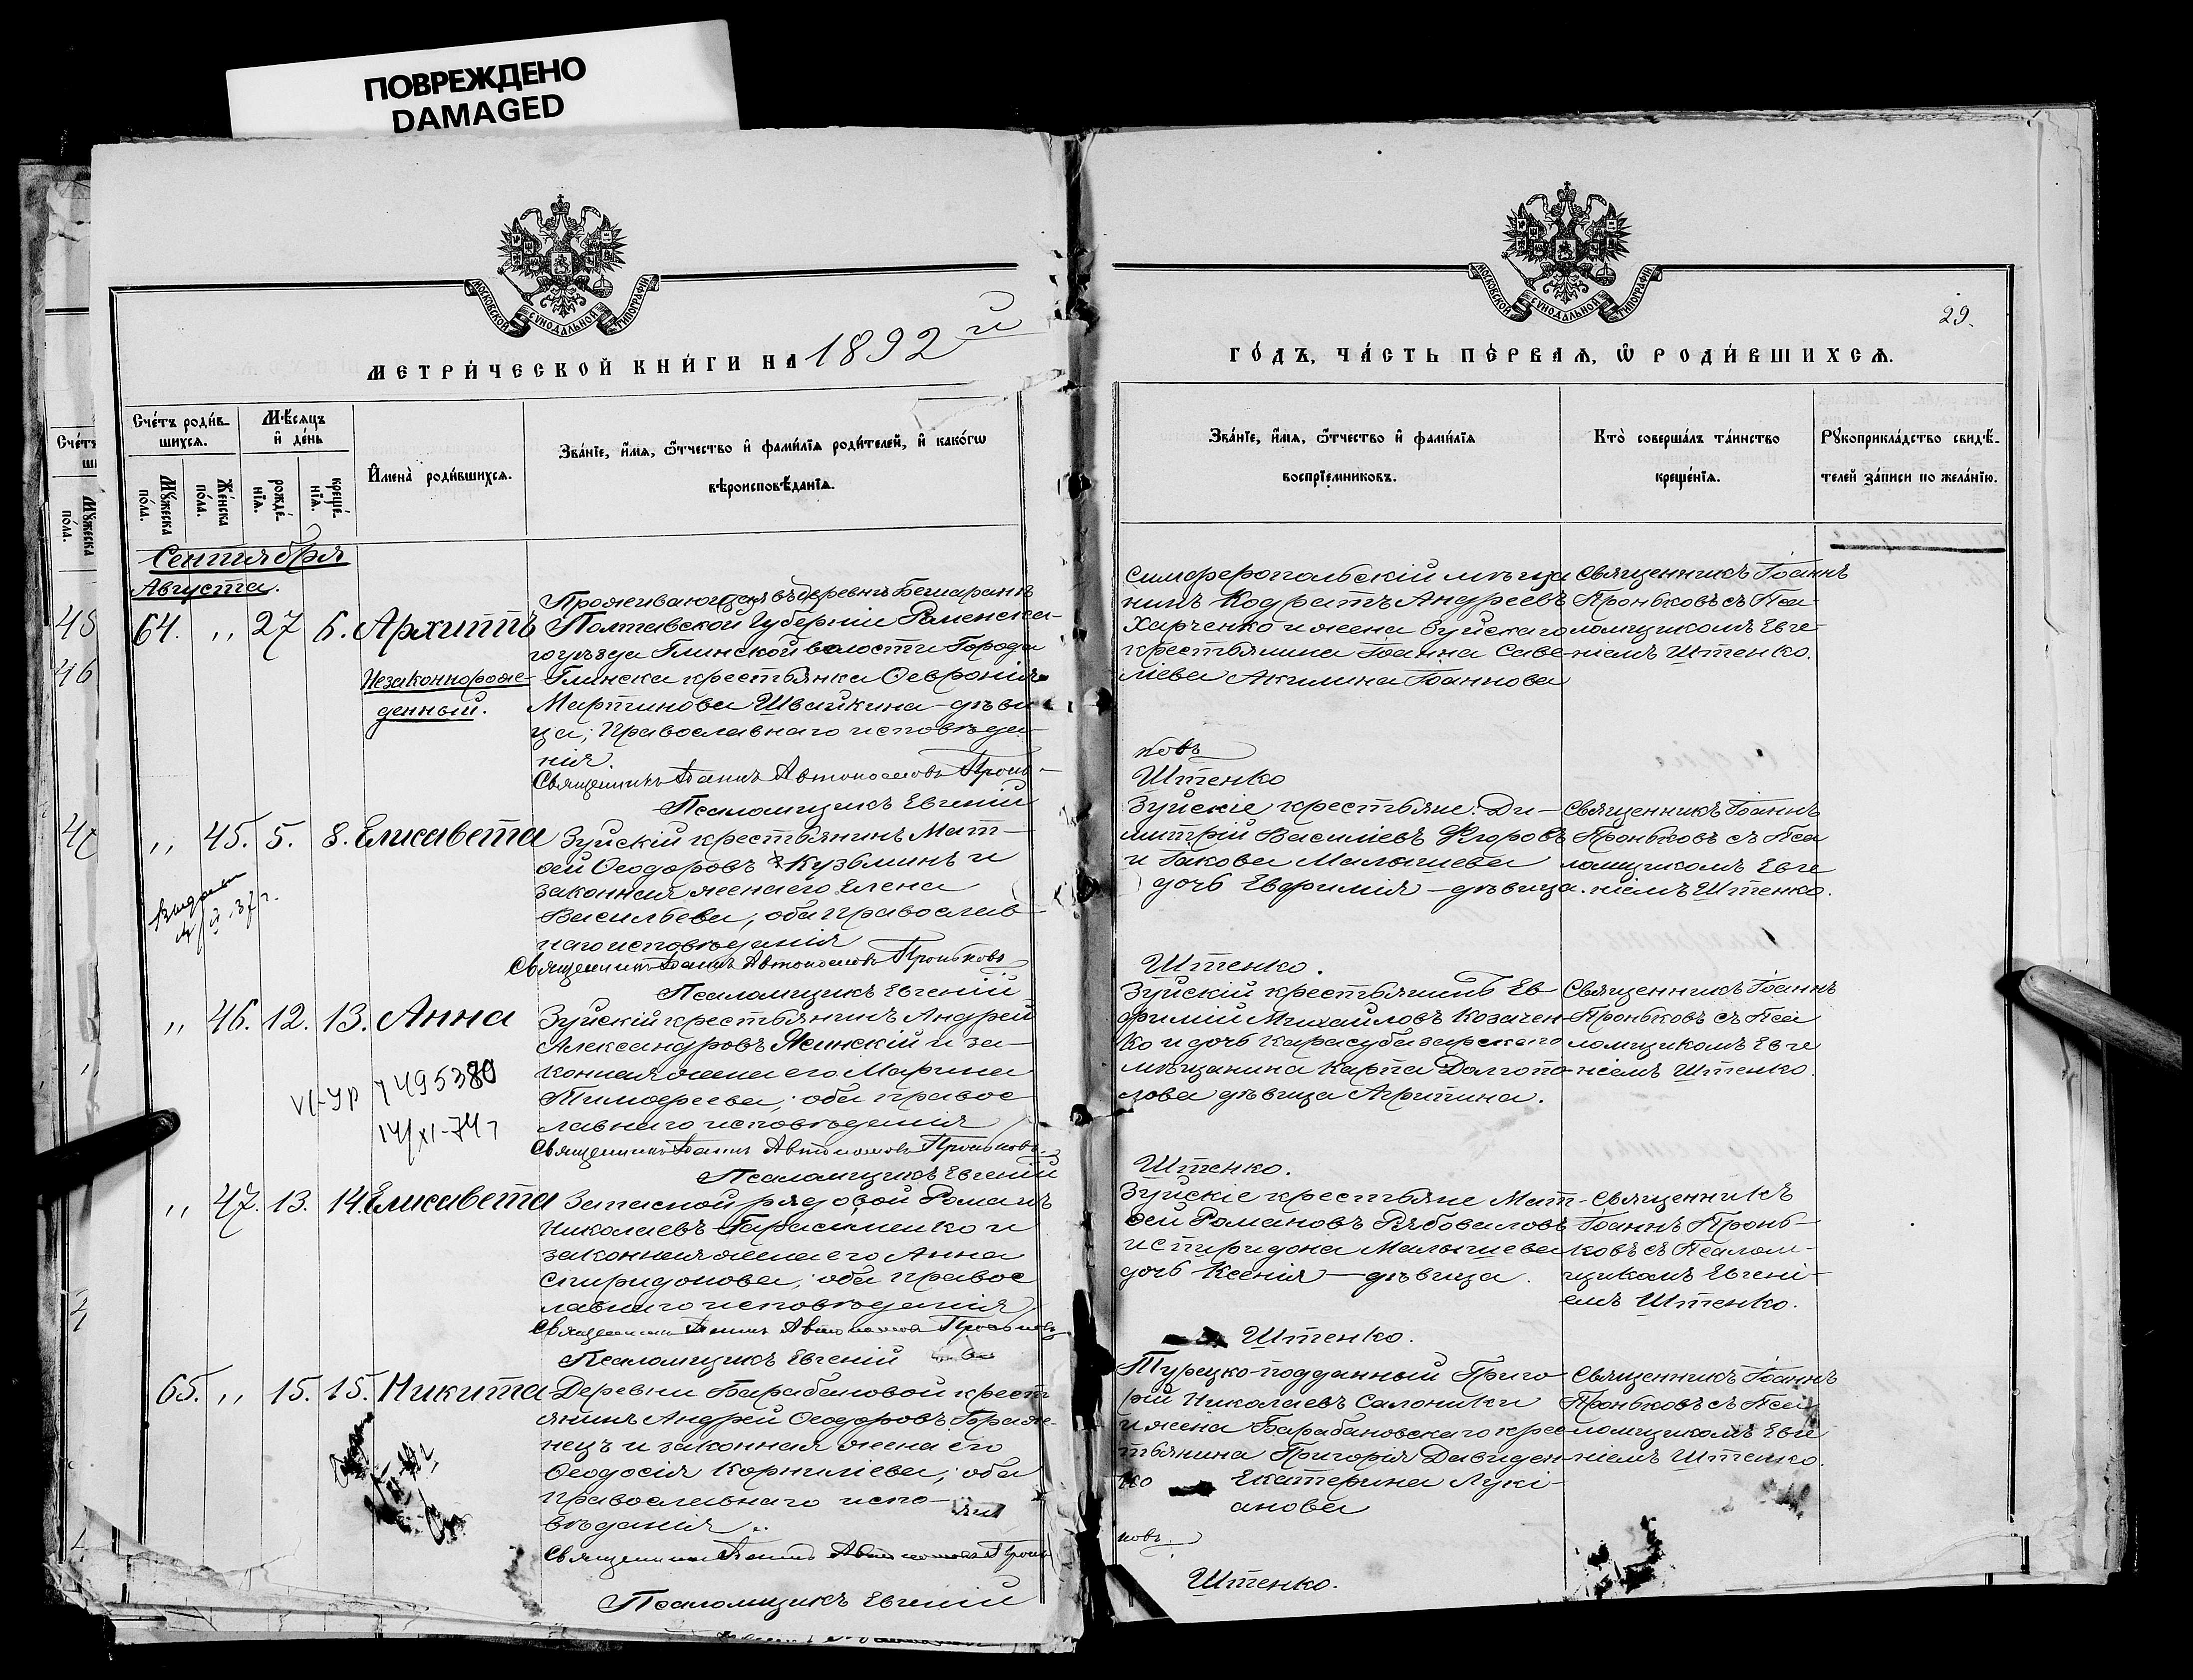 ПОВРЕЖДЕНО
DAMAGED
МОСКОВСКОЙ СѴНОДАЛЬНОЙ ТИПОГРАФІИ
МЕТРИ́ЧЕСКОЙ КНИ́ГИ НА 1892й
Сче́тъ роди́в-
шихсѧ.
Мѣ́сяцъ
и҆ де́нь
И҆мена̀ роди́вшихсѧ.
Зва́нїе, и҆́мѧ, ѻ҆́тчество и҆ фами́лїѧ роди́телей, и҆ како́гѡ
вѣроисповѣ́данїѧ.
Мꙋ́жеска
по́ла.
Же́нска
по́ла.
рожде́-
нїѧ.
креще́-
нїѧ.
Сентября
Августа.
64. ,, 27 6. Архиппъ
Незаконнорож-
денный.
Проживающая въ деревнѣ Бешаранѣ
Полтавской Губерніи Роменска-
го уѣзда Глинской волости Города
Глинска крестьянка Февронія
Мартинова Швайкина - дѣви
ца, Православнаго исповѣда
нія.
Священникъ Іоаннъ Автономовъ Проньковъ
Псаломщикъ Евгеній
,, 45. 5. 8. Елисавета
Зуйскій крестьянинъ Мат-
ѳей Ѳеодоровъ Кузьминъ и
законная жена его Елена
Васильева, оба православ-
наго исповѣданія
Священникъ Іоаннъ Автономовъ Проньковъ
Псаломщикъ Евгеній
,, 46. 12. 13. Анна
7495380
Зуйскій крестьянинъ Андрей
Александровъ Ясинскій и за-
конная жена его Марина
Тимофеева, оба правос
лавнаго исповѣданія
Священникъ Іоаннъ Автономовъ Проньковъ
Псаломщикъ Евгеній
,, 47. 13. 14. Елисавета
Запасной рядовой Романъ
Николаевъ Герасименко и
законная жена его Анна
Спиридонова, оба правос
лавнаго исповѣданія
Священникъ Іоаннъ Автономовъ Проньковъ
Псаломщикъ Евгеній
65. ,, 15. 15. Никита
Деревни Барабановой крест
янинъ Андрей Ѳеодоровъ
и законная жена его
Ѳеодосія Корниліева, оба
православнаго испо-
вѣданія.
Священникъ Іоаннъ Автономовъ Пронь
Псаломщикъ Евгеній
МОСКОВСКОЙ СѴНОДАЛЬНОЙ ТИПОГРАФІИ
29.
ГО́ДЪ, ЧА́СТЬ ПЕ́РВАѦ, Ѡ҆ РОДИ́ВШИХСѦ.
Зва́нїе, и҆́мѧ, ѻ҆́тчество и҆ фами́лїѧ
воспрїе́мниковъ.
Кто̀ соверша́лъ та́инство
креще́нїѧ.
Рꙋкоприкла́дство свидѣ́-
телей за́писи по жела́нїю.
Симферопольскій мѣща
нинъ Кодратъ Андреевъ
Харченко и жена Зуйскаго
крестьянина Іоанна Саве-
ліева Акилина Іоаннова
Священникъ Іоаннъ
Проньковъ съ Пса-
ломщикомъ Евге-
ніемъ Штенко.
ковъ
Штенко
Зуйскіе крестьяне: Ди-
митрій Василіевъ Фгоровъ
и Іакова Малышева
дочь Евфимія - дѣвица.
Священникъ Іоаннъ
Проньковъ съ Пса
ломщикомъ Евге
ніемъ Штенко.
Штенко.
Зуйскій крестьянинъ Ев-
фимій Михайловъ Козачен-
ко и дочь Карасубазарскаго
мѣщанина Карпа Долгопо-
лова дѣвица Агрипина.
Священникъ Іоаннъ
Проньковъ съ Пса
ломщикомъ Евге
ніемъ Штенко.
Штенко.
Зуйскіе крестьяне Мат-
ѳей Романовъ Рябоваловъ
и Спиридона Малышева
дочь Ксенія - дѣвица.
Священникъ
Іоаннъ Пронь-
ковъ съ Псалом-
щикомъ Евгені-
емъ Штенко.
Штенко.
Турецко-подданный Григо
рій Николаевъ Салоники
и жена Барабановскаго крес
тьянина Григорія Давиден-
ко Екатерина Лукі-
анова
Священникъ Іоаннъ
Проньковъ съ Пса
ломщикомъ Евге
ніемъ Штенко.
ковъ
Штенко.